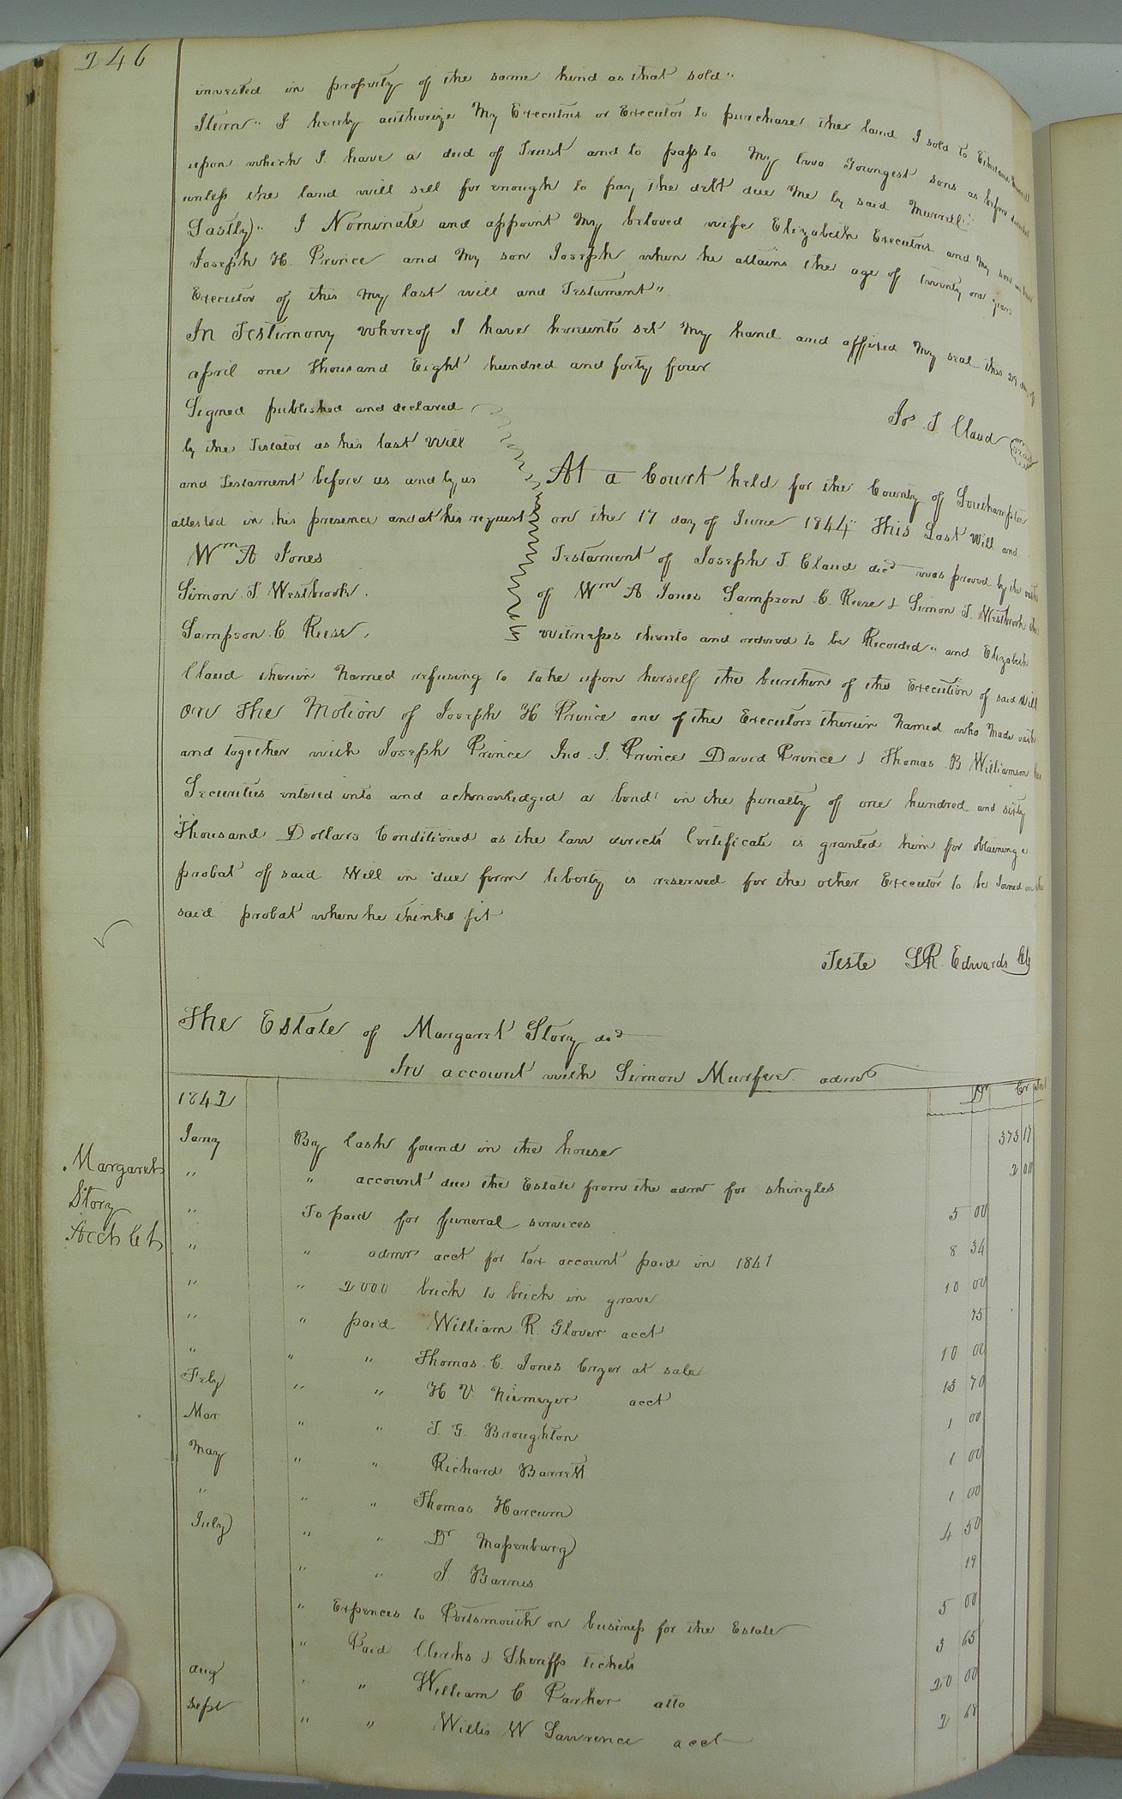 246
invested in property of the same kind as that sold"
Item" I hereby authorize My Executrix or Executor to purchase the land I sold to
upon which I have a deed of Trust and to pass to My two Youngest sons as before
unless the land will sell for enough to pay the debt due Me by said Murrell"
Lastly" I Nominate and appoint My beloved wife Elizabeth Executrix and My
Joseph H. Prince and My son Joseph when he attains the age of twenty one years
Executor of this My last will and Testament"
In Testimony whereof I have hereunto set My hand and affixed My seal this 29
april one thousand Eight hundred and forty four
Jos J Claud Seal
Signed published and declared
by the Testator as his last Will
and Testament before us and by us
attested in his presence and at his request
Wm A Jones
Simon J Westbrook.
Sampson C. Reese,
At a Court held for the County of Southampton
on the 17 day of June 1844 This Last Will and
Testament of Joseph J Claud decd was proved by the
of Wm A Jones Sampson C. Reese & Simon J. Westbrook
witnesses thereto and ordered to be Recorded" and Elizabeth
Claud therein Named refusing to take upon herself the burthen of the Execution of said Will
On The Motion of Joseph H Prince one of the Executors therein Named who Made oath
and together with Joseph Prince Jno. J. Prince David Prince & Thomas B Williamson
Securities entered into and acknowledged a bond in the penalty of one hundred and sixty
Thousand Dollars Conditioned as the law directs Certificate is granted him for obtaining a
probat of said Will in due form liberty is reserved for the other Executor to be Joined in the
said probat when he thinks fit
Teste LR. Edwards Clk
The Estate of Margaret Story decd
In account with Simon Murfee admr
Dr Cr
1842
Margarets
Story
Acct Ct
Jany By Cash found in the house 373 17
" " account due the Estate from the admr for shingles 2 00
" To paid for funeral services 5 00
" " admrs acct for tax account paid in 1841 8 34
" " 2000 brick to brick in grave 10 00
" " paid William R. Glover acct 75
" " " Thomas C. Jones Cryer at sale 10 00
Feby " " H V Niemeyer acct 15 70
Mar " " T. G. Broughton 1 00
May " " Richard Barrett 1 00
" " " Thomas Harcum 1 00
July " " Dr Massenburg 4 50
" " J Barnes 19
" Expences to Portsmouth on business for the Estate 5 00
" Paid Clerks & Sheriffs tickets 3 65
aug " " William C Parker atto 20 00
Sept " " Willis W Lawrence acct 2 68